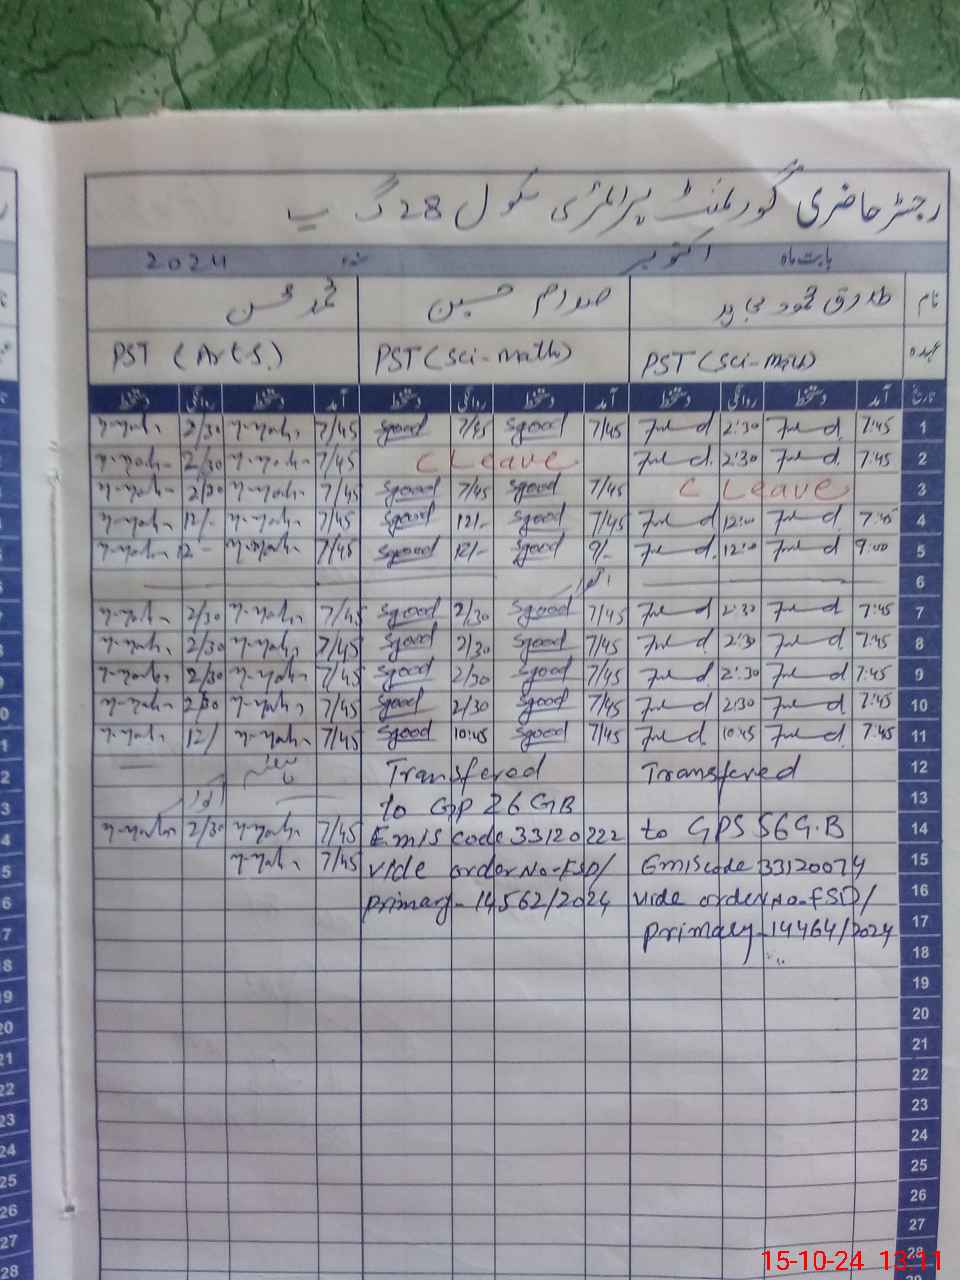 رجسٹر حاضری گورنمنٹ پرائمری سکول 28 گ ب
بابت ماہ اکتوبر 2024
نام طارق محمود صدام حسین محمد محسن
عہدہ PST (Sci-Math) PST (Sci-math) PST (Arts.)
تاریخ آمد دستخط روانگی دستخط آمد دستخط روانگی دستخط آمد دستخط روانگی دستخط
1 7:45 2:30 7/45 Sgood 7/45 Sgood 7/45 2/30
2 7:45 2:30 C Leave 7/45 2/30
3 C Leave 7/45 Sgood 7/45 Sgood 7/45 2/30
4 7:45 12:00 7/45 Sgood 12/- Sgood 7/45 12/-
5 9:00 12:00 9/- Sgood 12/- Sgood 7/45 12-
6 اتوار
7 7:45 2:30 7/45 Sgood 2/30 Sgood 7/45 2/30
8 7:45 2:30 7/45 Sgood 2/30 Sgood 7/45 2/30
9 7:45 2:30 7/45 Sgood 2/30 Sgood 7/45 2/30
10 7:45 2:30 7/45 Sgood 2/30 Sgood 7/45 2/30
11 7:45 10:45 7/45 Sgood 10:45 Sgood 7/45 12/
12 Transfered Transfered
13 to GP 26 GB اتوار
14 to GPS 56 G.B Emis code 33120222 7/45 2/30
15 Emiscode 33120074 vide order No-FSD/ 7/45
16 vide order No-FSD/ primary-14562/2024
17 primary-14464/2024
18
19
20
21
22
23
24
25
26
27
28
15-10-24 13:11